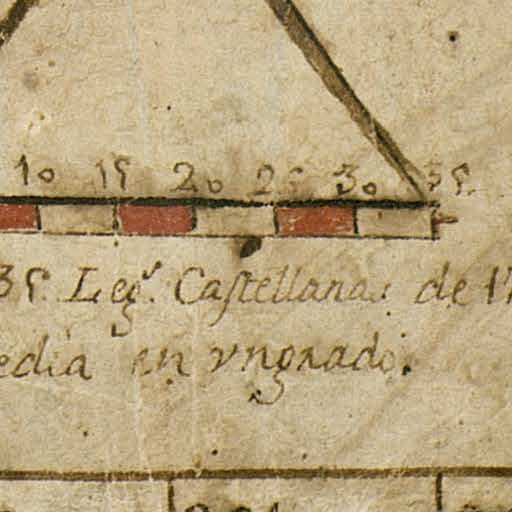 10 15 20 25 30 35
35. Leg.s Castellanas de 17
edia en vngrado.